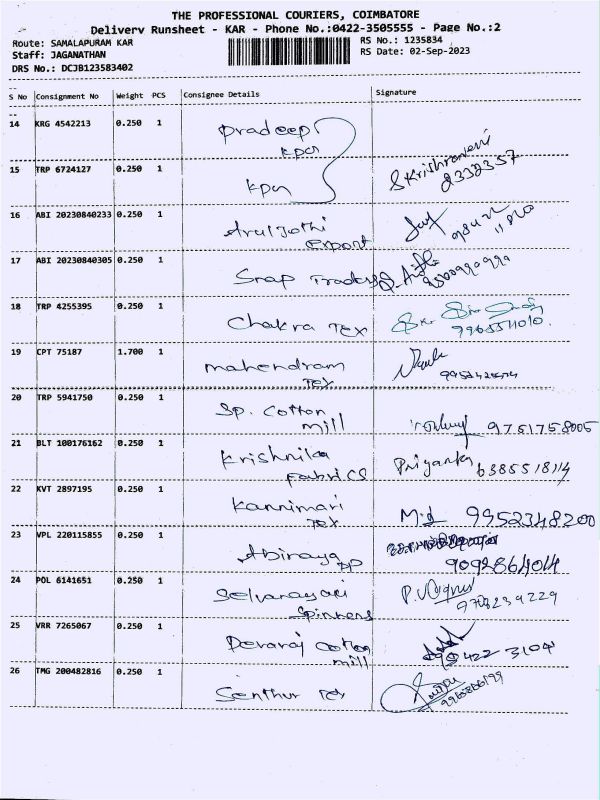 THE PROFESSIONAL COURIERS, COIMBATORE
Delivery Runsheet - KAR - Phone No.:0422-3505555 - Page No.:2
Route: SAMALAPURAM KAR
RS No.: 1235834
Staff: JAGANATHAN
RS Date: 02-Sep-2023
DRS No.: DCJB123583402
S No Consignment No Weight PCS Consignee Details Signature
14 KRG 4542213 0.250 1 Pradeep
kpcs
15 TRP 6724127 0.250 1 kpcs
2332357
16 ABI 20230840233 0.250 1 Arul Jothi
Export
17 ABI 20230840305 0.250 1 Snap Traders
18 TRP 4255395 0.250 1 Chakra Tex
19 CPT 75187 1.700 1 mahendram
Tex
20 TRP 5941750 0.250 1 Sp. Cotton
mill 9751758005
21 BLT 100176162 0.250 1 Krishnika
Fabrics Priyanka 6385518114
22 KVT 2897195 0.250 1 Kannimari
Tex M.d 9952348200
23 VPL 220115855 0.250 1 Abinaya
PP 9092864014
24 POL 6141651 0.250 1 Selvanayaki
Spinners
25 VRR 7265067 0.250 1 Devaraj Cotton
mill
26 TMG 200482816 0.250 1 Senthur Tex